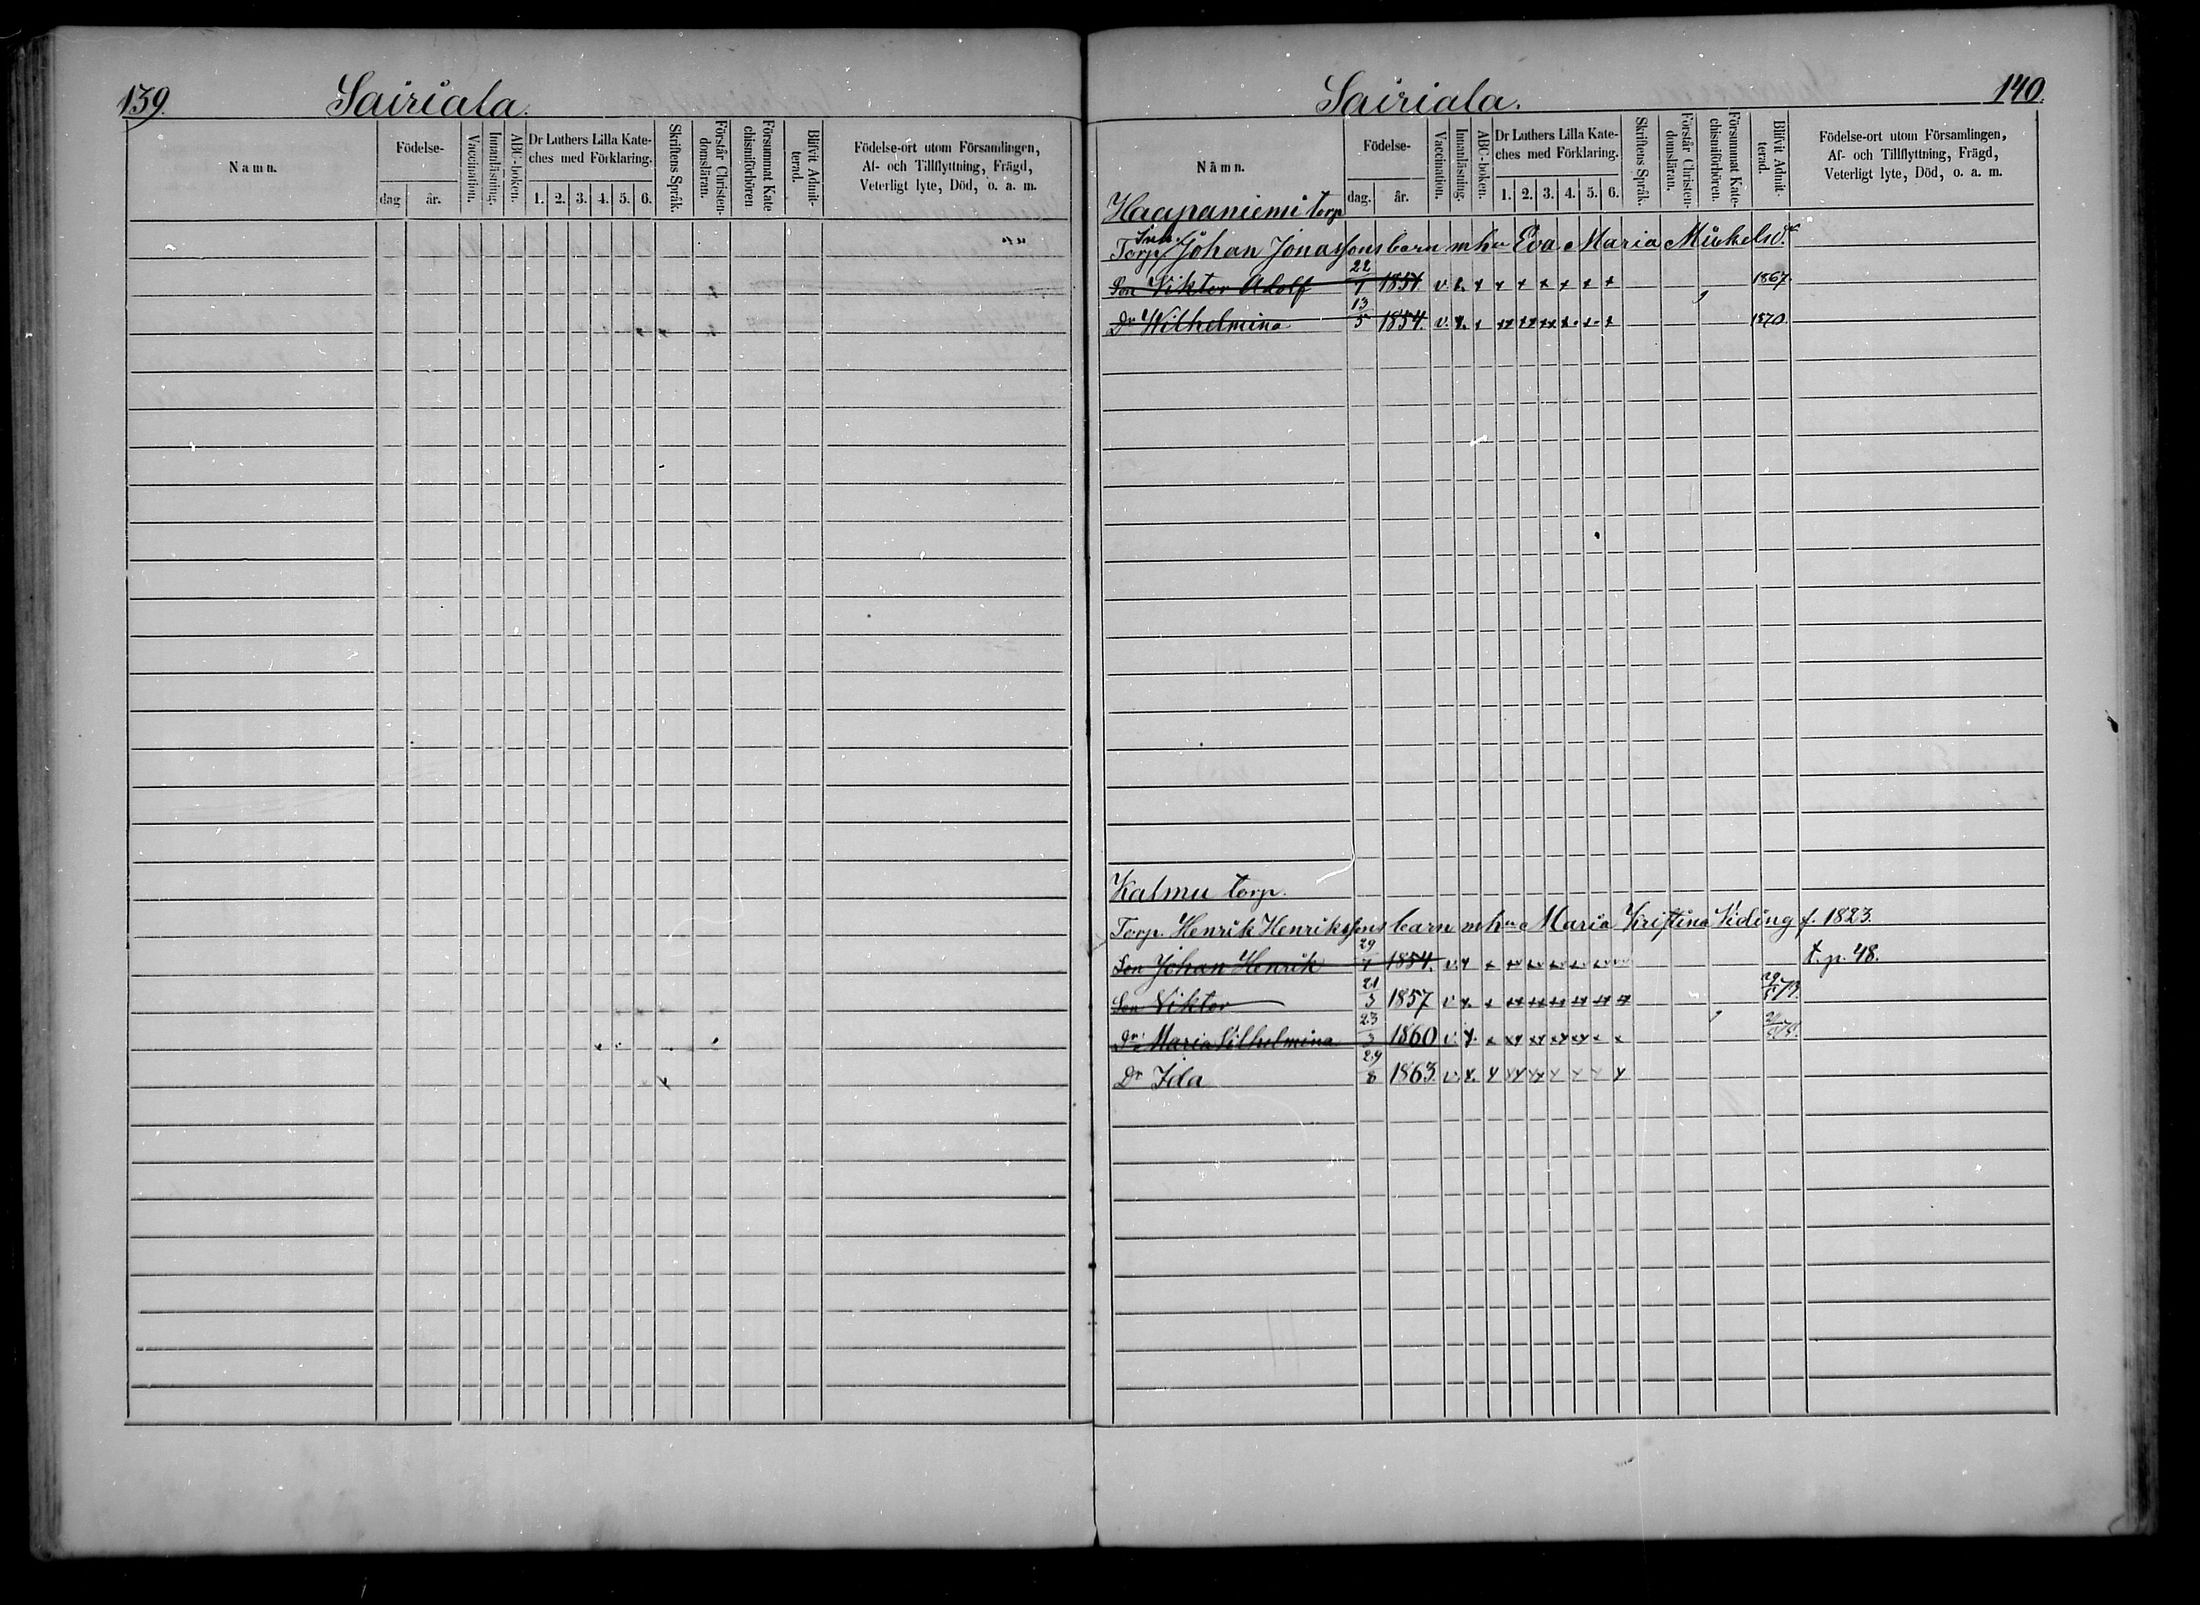 139.
Sairiala.
Namn.
Födelse-
dag
år.
Vaccination.
Innanläsning.
ABC-boken.
Dr Luthers Lilla Kate-
ches med Förklaring.
1. 2. 3. 4. 5. 6.
Skriftens Språk.
Förstår Christen-
domsläran.
Försummat Kate
chismiförhören
Blifvit Admit-
terad.
Födelse-ort utom Församlingen,
Af- och Tillflyttning, Frägd,
Veterligt lyte, Död, o. a. m.
Sairiala.
140.
Namn.
Födelse-
dag.
år.
Vaccination.
Innanläsning.
ABC-boken.
Dr Luthers Lilla Kate-
ches med Förklaring.
1. 2. 3. 4. 5. 6.
Skriftens Språk.
Förstår Christen-
domsläran.
Försummat Kate-
chismiförhören.
Blifvit Admit-
terad.
Födelse-ort utom Församlingen,
Af- och Tillflyttning, Frägd,
Veterligt lyte, Död, o. a. m.
Haapaniemi torp
Torp. Johan Jonassons barn m hu Eva Maria Mickelsd.r
Son Viktor Adolf 22/1 1851 v. x. x x x x x x x 1867.
Dr Wilhelmina 13/5 1854. v. x. x xx xx xx x. x. x 1870.
Kalmu torp.
Torp. Henrik Henrikssons barn m hu Maria Kristina Viding f. 1823.
Son Johan Henrik 29/7 1854. v. x x xx xx xx xx xx xx t. p. 48.
Son Viktor 21/3 1857 v x. x xx xx xx xx xx xx 29/5 73.
Dr Maria Vilhelmina 23/3 1860 v. x. x xx xx xx xx x x
Dr Ida 29/8 1863. v. x. x xx xx x x x x